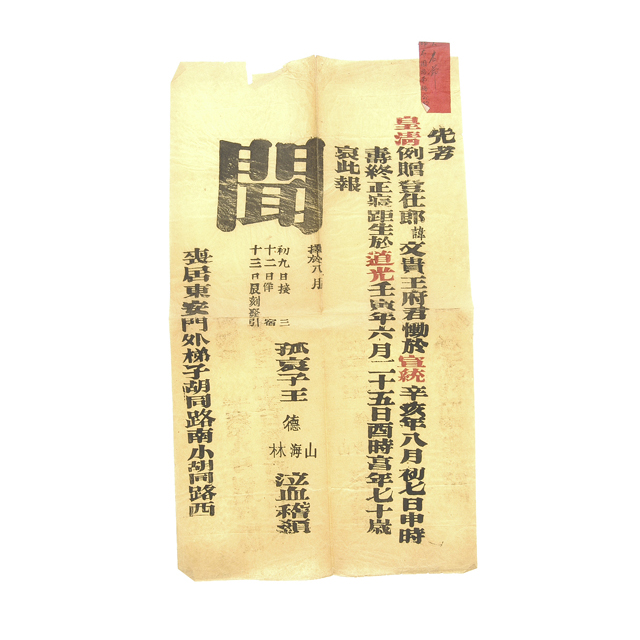 先考
皇清例贈登仕郎諱文貴王府君慟於宣統辛亥年八月初七日申時
壽終正寢距生於道光壬寅年六月二十五日酉時享年七十歲
哀此報
聞
擇於八月
初九日接三
十二日伴宿
十三日辰刻發引
孤哀子王德山海林泣血稽顙
喪居東安門外梯子胡同路南小胡同路西